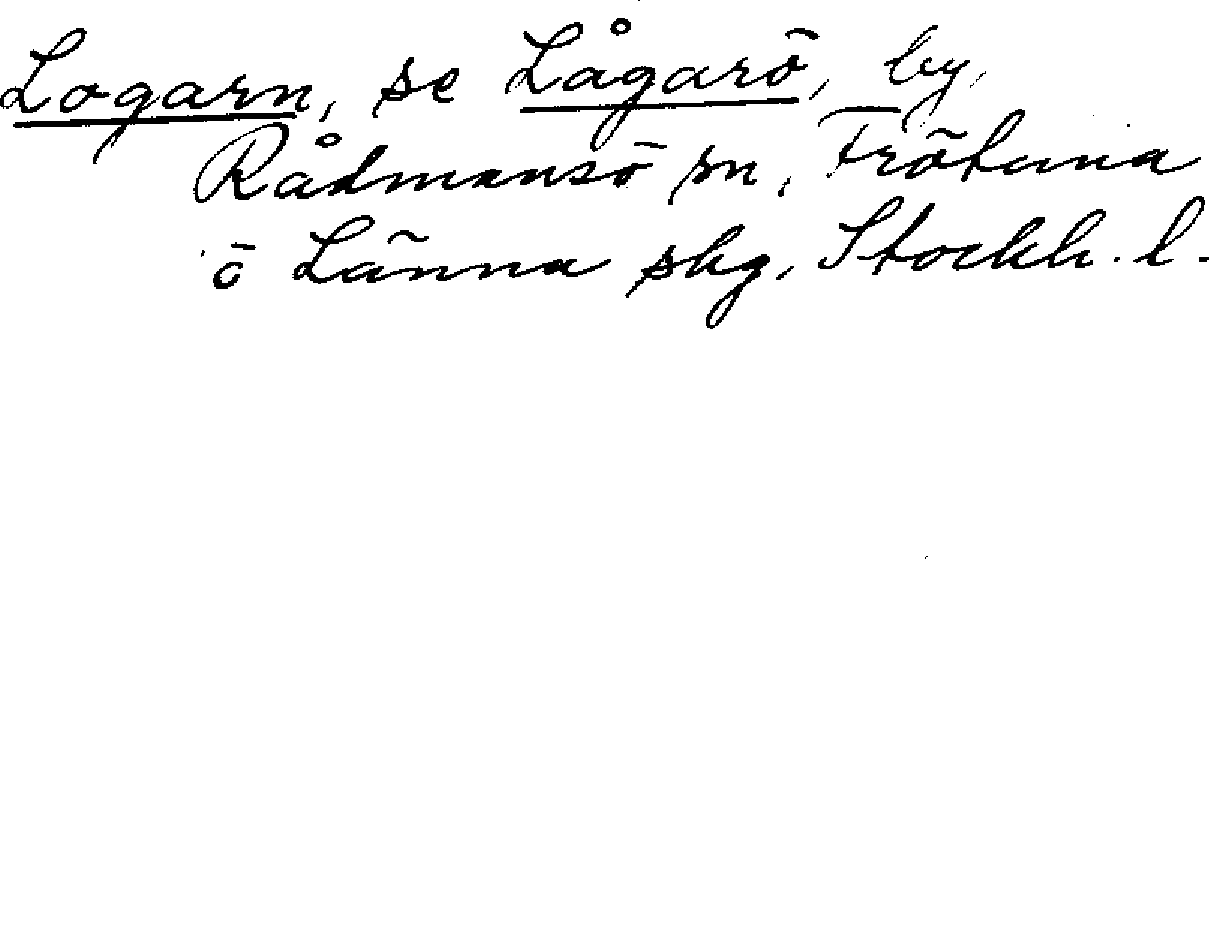 Logarn, se Lågarö, by,
Rådmansö sn, Frötuna
o Länna skg, Stockh. l.